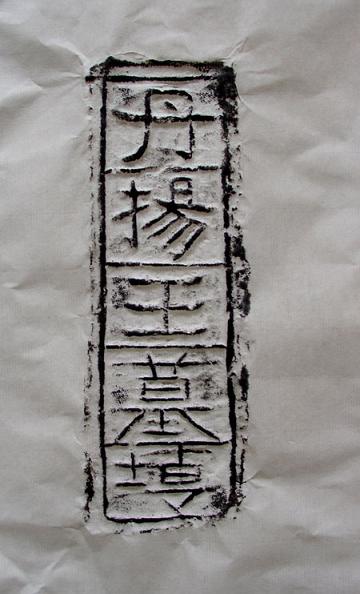 丹揚王墓塼